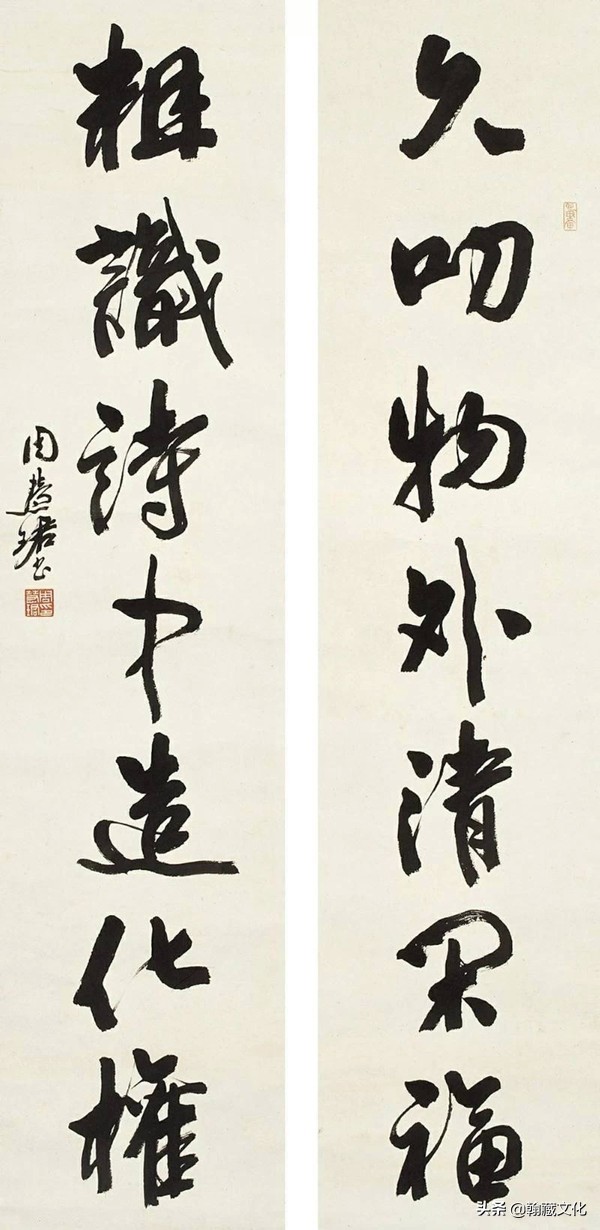 久叨物外清閑福
粗識詩中造化權
周慧珺書
头条 @翰藏文化